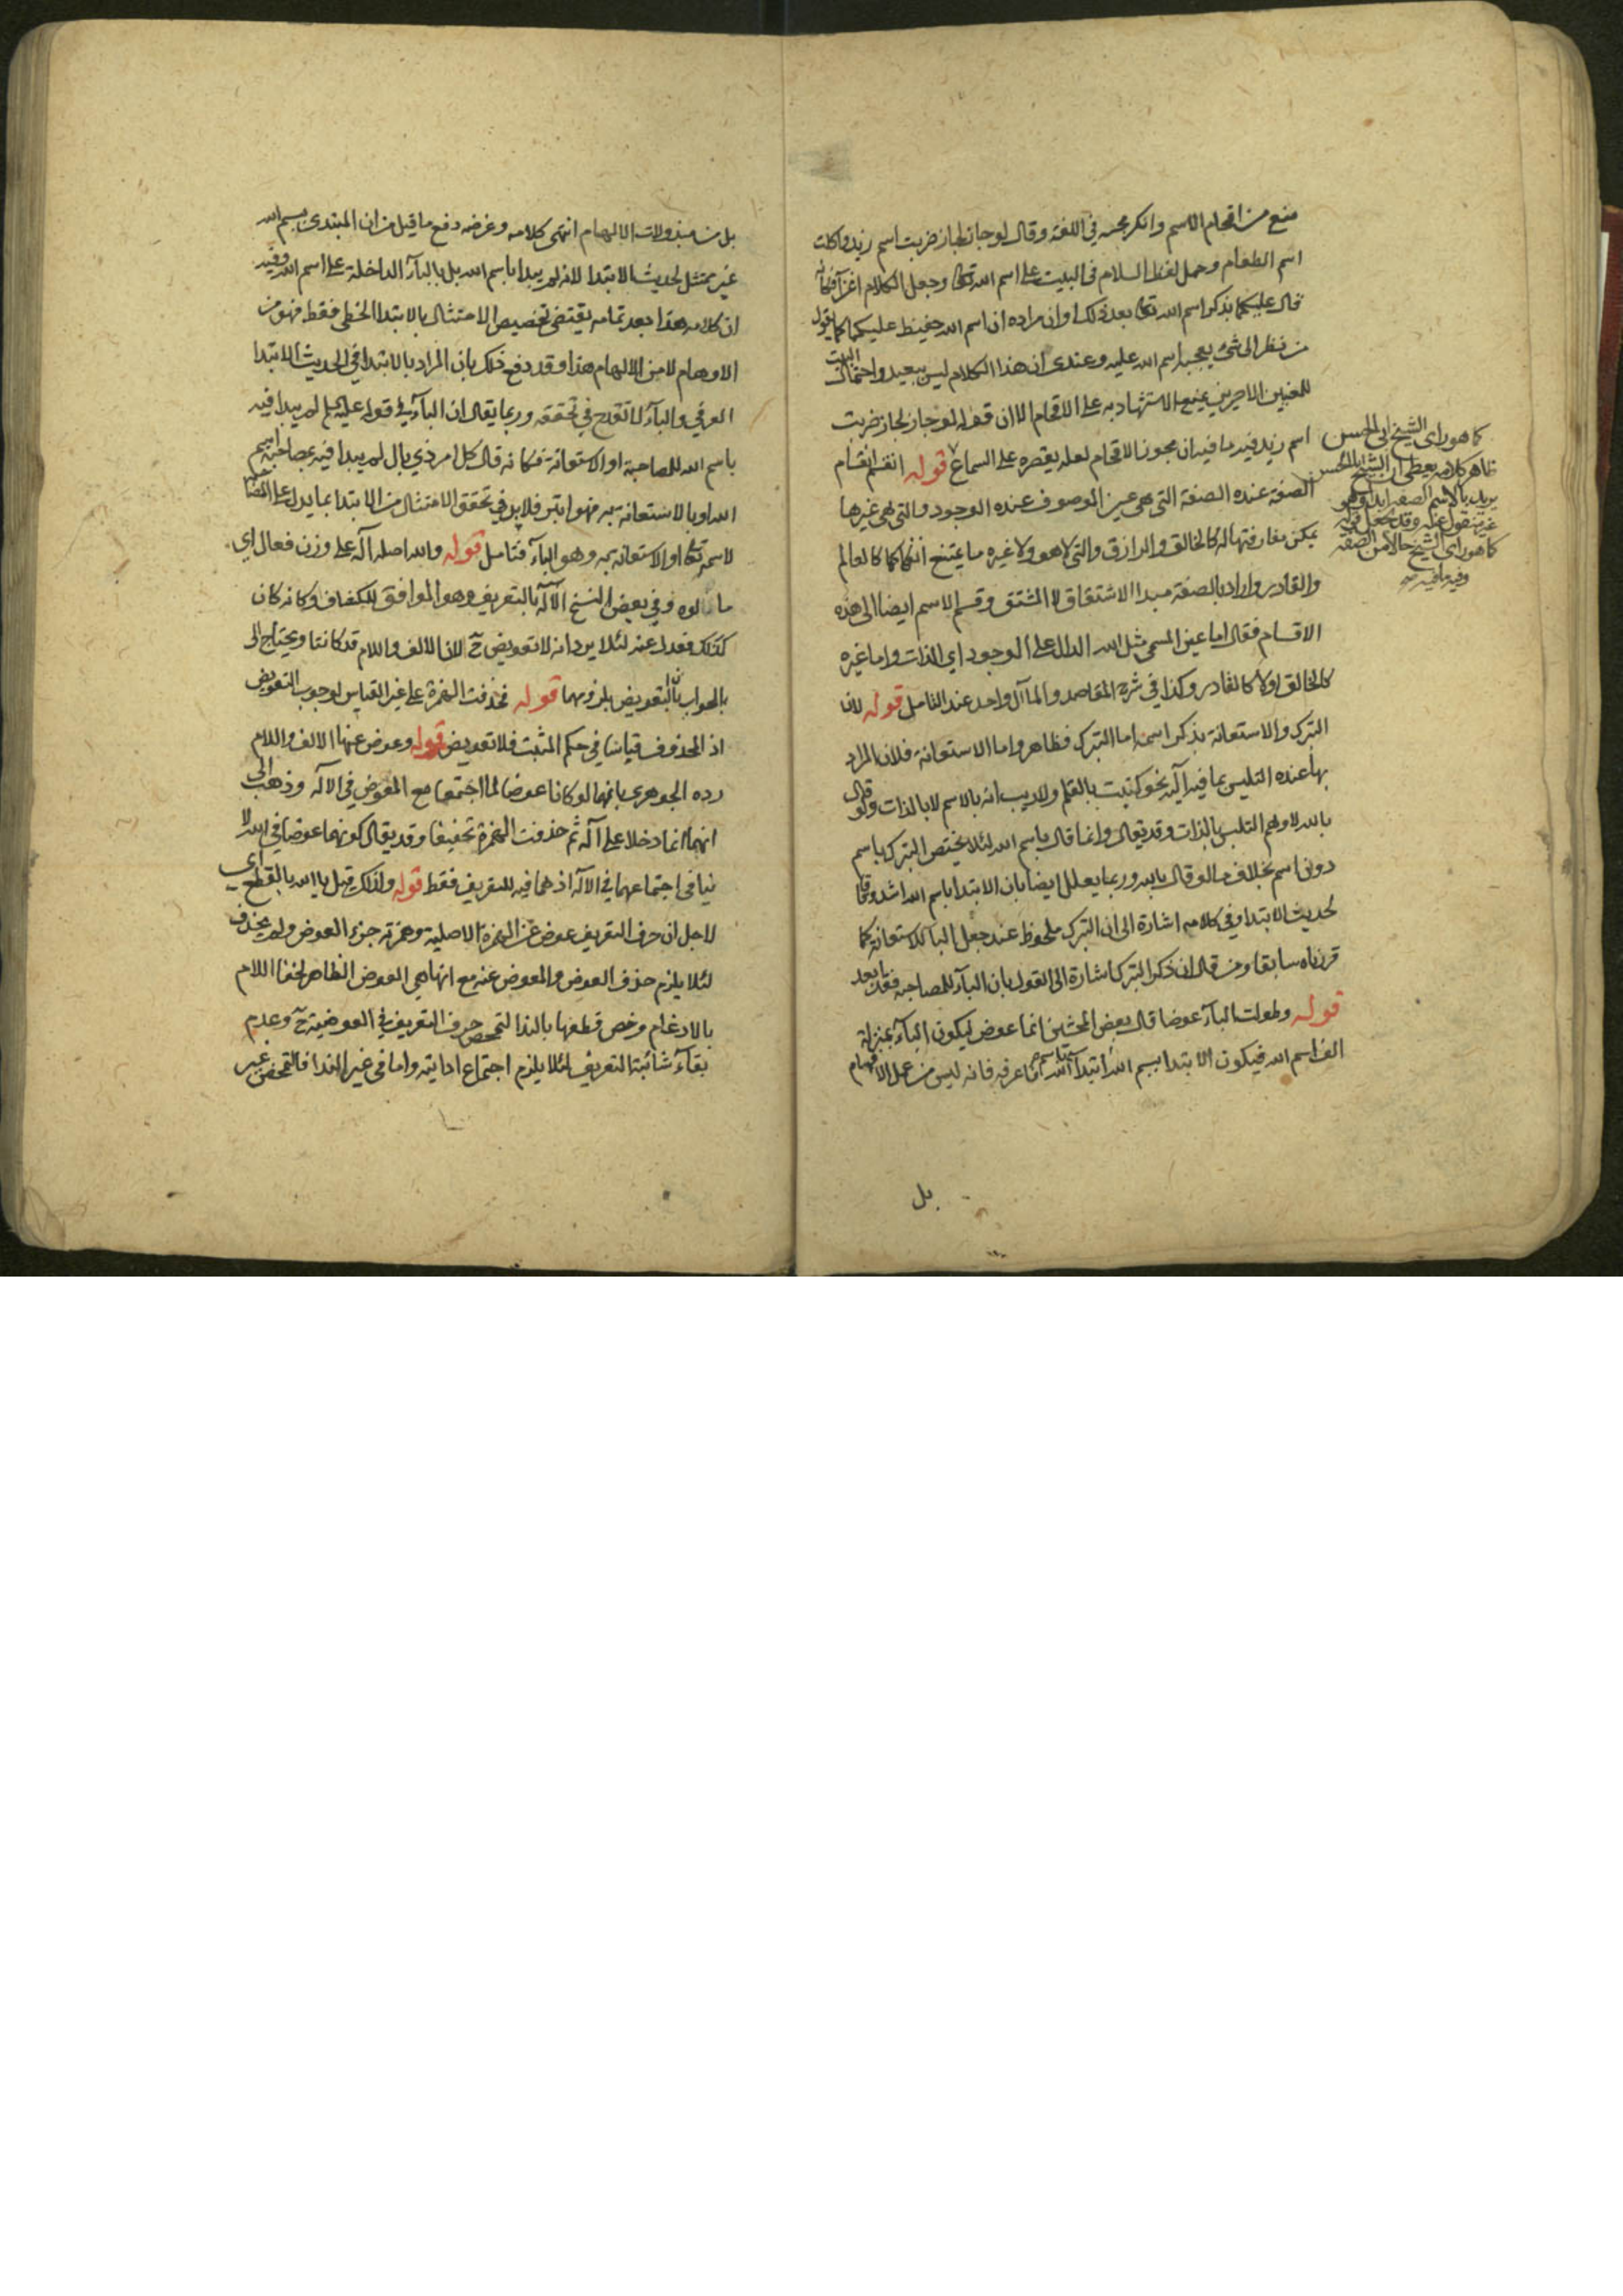 منع من اقحام الاسم وانكر مجيه فى اللغة وقال لو جاز لجاز ضربت اسم زيد واكلت
اسم الطعام وحمل لفظ السلام فى البيت على اسم الله تعالى وجعل الكلام اغرآ فكانه
قال عليكما بذكر اسم الله تعالى بعد ذلك او ان مراده ان اسم الله حفيظ عليكما كما يقول
من نظر الى شئ يعجبه اسم الله عليه وعندى ان هذا الكلام ليس ببعيد واحتمال البيت
للمعنيين الاخيرين يمنع الاستشهاد به على الاقحام الا ان قوله لو جاز لجاز ضربت
اسم زيد فيه ما فيه ان مجوز الاقحام لعله يقصره على السماع قوله انقسم انقسام
الصفة عنده الصفة التى هى عين الموصوف عنده الوجود والتى هى غيرها
يمكن مفارقتها له كالخالق والرازق والتى لا هو ولا غيره ما يمتنع انفكاكها كالعالم
والقادر واراد بالصفة مبدا الاشتقاق لا المشتق وقسم الاسم ايضا الى هذه
الاقسام فقال اما عين المسمى مثل الله الدال على الوجود اي الذات واما غيره
كالخالق اولا كالقادر وكذا في شرح المقاصد والمآل واحد عند التامل قوله لان
التبرك والاستعانة بذكر اسمه اما التبرك فظاهر واما الاستعانة فلان المراد
بها عنده التلبس بما فيه آلية نحو كتبت بالقلم ولا ريب انه بالاسم لا بالذات ولو قال
بالله لاوهم التلبس بالذات وقد يقال وانما قال باسم الله لئلا يختص التبرك باسم
دون اسم بخلاف ما لو قال بالله وربما يعلل ايضا بان الابتدا باسم الله اشد وفاقا
لحديث الابتدا وفي كلامه اشارة الى ان التبرك ملحوظ عند جعل البا للاستعانة كما
قررناه سابقا ومن قال ان ذكر التبرك اشارة الى القول بان البآء للمصاحبة فقد ابعد
قوله وطولت البآء عوضا قال بعض المحشين انما عوض ليكون البآء بمنزلة
الف اسم الله فيكون الابتدا ببسم الله ابتدآء باسم الله فانه ليس من عمل الافهام
بل
كما هو راى الشيخ ابى الحسن
ظاهر كلامه يعطى ان الشيخ ابا الحسن
يريد بالاسم الصفة ابدا وهو
غير منقول عنه وقد يجعل قوله
كما هو راى الشيخ حالا من الصفة
وفيه ما فيه منه
بل من مبذولات الالهام انتهى كلامه وغرضه دفع ما قيل من ان المبتدى ببسم الله
غير ممتثل لحديث الابتدا لانه لم يبدا باسم الله بل بالبآء الداخلة على اسم الله وفيه
ان كلامه هذا بعد تمامه يقتضى تخصيص الامتثال بالابتدا الخطى فقط فهو من
الاوهام لا من الالهام هذا وقد دفع ذلك بان المراد بالابتدا في الحديث الابتدا
العرفي والبآء لا تقدح في تحققه وربما يقال ان البآء في قوله عليه لم يبدا فيه
باسم الله للمصاحبة او الاستعانة فكانه قال كل امر ذي بال لم يبدا فيه بمصاحبة اسم
الله او بالاستعانة به فهو ابتر فلا بد في تحقق الامتثال من الابتدا بما يدل على المصاحبة
لاسمه تعالى او الاستعانة به وهو البآء فتامل قوله والله اصله اله على وزن فعال اي
مألوه وفي بعض النسخ الاله بالتعريف وهو الموافق للكشاف وكانه كان
كذلك فعدل عنه لئلا يرد انه لا تعويض ح لان الالف واللام قد كانتا ويحتاج الى
الجواب بان التعويض بلزومهما قوله فحذفت الهمزة على غير القياس لوجوب التعويض
اذ المحذوف قياسا في حكم المثبت فلا تعويض قوله وعوض عنها الالف واللام
رده الجوهري بانهما لو كانا عوضا لما اجتمعا مع المعوض في الاله وذهب الى
انهما انما دخلا على اله ثم حذفت الهمزة تخفيفا وقد يقال كونهما عوضا في الله لا
ينافى اجتماعهما في الاله اذ هما فيه للتعريف فقط قوله ولذلك قيل يا الله بالقطع اى
لاجل ان حرف التعريف عوض عن الهمزة الاصلية وهمزته جزء العوض ولم يحذف
لئلا يلزم حذف العوض والمعوض عنه مع انها هي العوض الظاهر لخفا اللام
بالادغام وخص قطعها بالندا لتمحض حرف التعريف في العوضية ح وعدم
بقآء شائبة التعريف لئلا يلزم اجتماع اداتيه واما في غير الندا فالتمحض غير